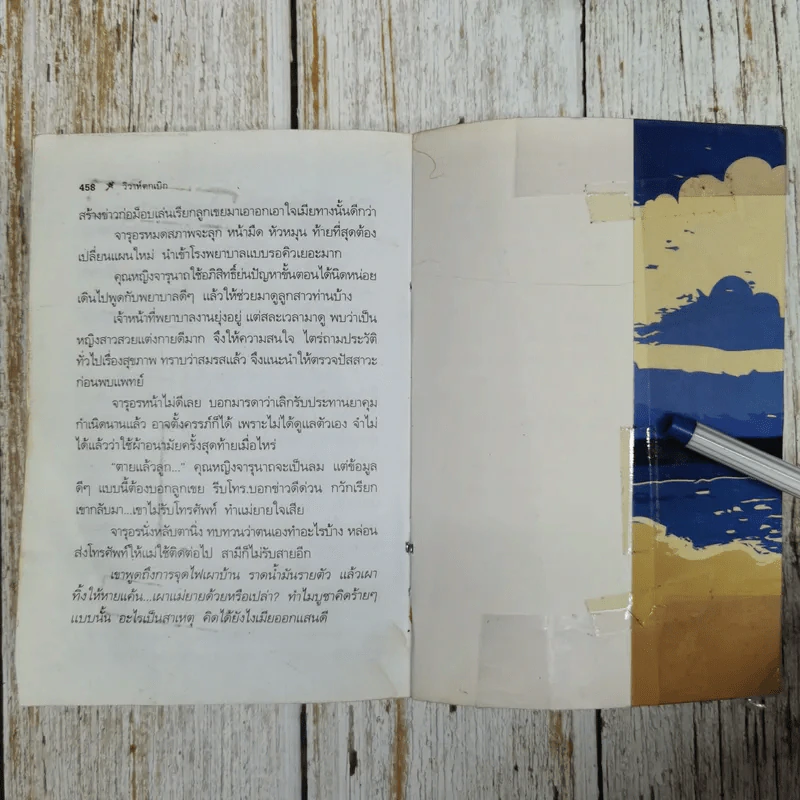 458 วิวาห์ตกเบิก
สร้างข่าวก่อม็อบเล่นเรียกลูกเขยมาเอาอกเอาใจเมียทางนั้นดีกว่า
จารุอรหมดสภาพจะลุก หน้ามืด หัวหมุน ท้ายที่สุดต้อง
เปลี่ยนแผนใหม่ นำเข้าโรงพยาบาลแบบรอคิวเยอะมาก
คุณหญิงจารุนาถใช้อภิสิทธิ์ย่นปัญหาขั้นตอนได้นิดหน่อย
เดินไปพูดกับพยาบาลดีๆ แล้วให้ช่วยมาดูลูกสาวท่านบ้าง
เจ้าหน้าที่พยาบาลงานยุ่งอยู่ แต่สละเวลามาดู พบว่าเป็น
หญิงสาวสวยแต่งกายดีมาก จึงให้ความสนใจ ไตร่ถามประวัติ
ทั่วไปเรื่องสุขภาพ ทราบว่าสมรสแล้ว จึงแนะนำให้ตรวจปัสสาวะ
ก่อนพบแพทย์
จารุอรหน้าไม่ดีเลย บอกมารดาว่าเลิกรับประทานยาคุม
กำเนิดนานแล้ว อาจตั้งครรภ์ก็ได้ เพราะไม่ได้ดูแลตัวเอง จำไม่
ได้แล้วว่าใช้ผ้าอนามัยครั้งสุดท้ายเมื่อไหร่
“ตายแล้วลูก...” คุณหญิงจารุนาถจะเป็นลม แต่ข้อมูล
ดีๆ แบบนี้ต้องบอกลูกเขย รีบโทร.บอกข่าวดีด่วน กวักเรียก
เขากลับมา...เขาไม่รับโทรศัพท์ ทำแม่ยายใจเสีย
จารุอรนั่งหลับตานิ่ง ทบทวนว่าตนเองทำอะไรบ้าง หล่อน
ส่งโทรศัพท์ให้แม่ใช้ติดต่อไป สามีก็ไม่รับสายอีก
เขาพูดถึงการจุดไฟเผาบ้าน ราดน้ำมันรายตัว แล้วเผา
ทิ้งให้หายแค้น...เผาแม่ยายด้วยหรือเปล่า? ทำไมบูชาคิดร้ายๆ
แบบนั้น อะไรเป็นสาเหตุ คิดได้ยังไงเมียออกแสนดี